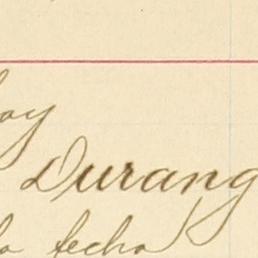 oy
Durang
la fecha